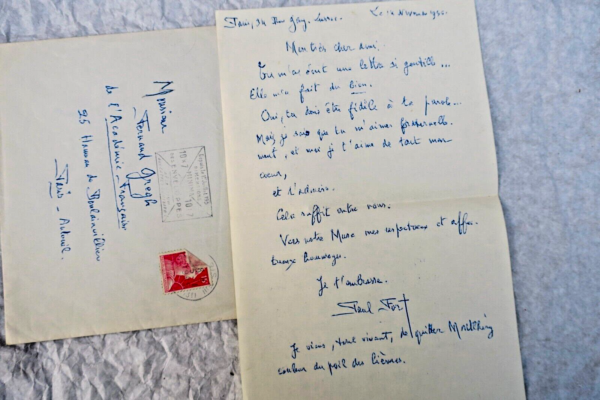 Paris, 34 Rue Gay-Lussac. Le 10 Novembre
Mon très cher ami.
Tu m'as écrit une lettre si gentille...
Elle m'a fait du bien.
Oui, tu dois être fidèle à ta parole...
Mais je sais que tu m'aimes fraternelle-
ment, et moi je t'aime de tout mon
cœur,
et t'admire.
Cela suffit entre nous.
Vers votre Muse mes respectueux et affec-
tueux hommages.
Je t'embrasse.
Paul Fort
Je viens, tout vivant, de quitter Montlhéry
couleur du poil des lièvres.
Monsieur
Fernand Gregh
de l'Académie-Française
25 Hameau de Boulainvilliers
Paris - Auteuil.